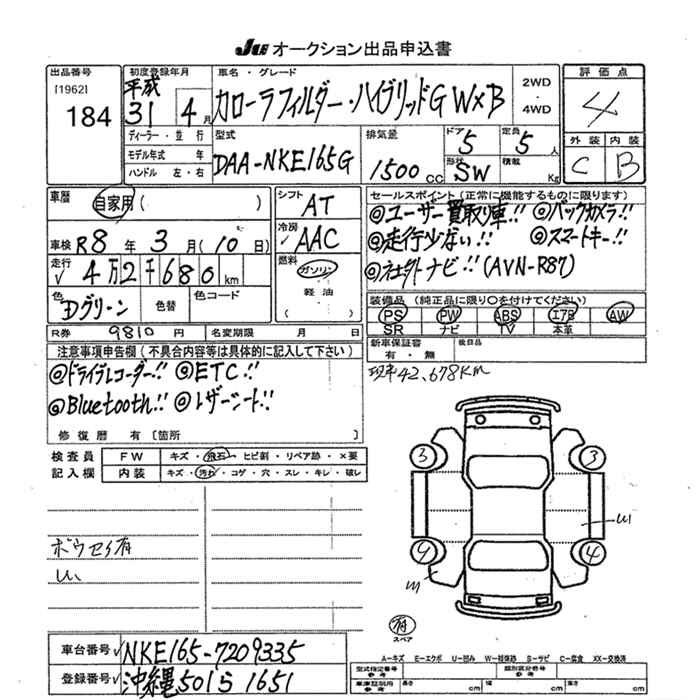 JU オークション出品申込書
出品番号 [1962] 184
初度登録年月 平成 31 4月
車名・グレード カローラフィルダー・ハイブリッドG W×B
2WD・4WD
評価点 4
外装 内装
C B
ディーラー・並行
モデル年式 年
ハンドル 左・右
型式 DAA-NKE165G
排気量 1500cc
ドア 5 定員 5人
形状 SW 積載 Kg
車歴 自家用 ( )
車検 R8年 3月 (10日)
走行 √ 4万2千680km
色 Dグリーン 色替 色コード
R券 9810円 名変期限 月 日
シフト AT
冷房 √ AAC
燃料 ガソリン・軽油・( )
セールスポイント (正常に機能するものに限ります)
◎ユーザー買取り車!! ◎バックカメラ!!
◎走行少ない!! ◎スマートキー!!
◎社外ナビ!! (AVN-R87)
装備品 (純正品に限り○を付けてください)
PS PW ABS エアB AW
SR ナビ TV 本革
新車保証書 有・無 後日品
現車42,678Km
注意事項申告欄 (不具合内容等は具体的に記入して下さい)
◎ドライブレコーダー!! ◎ETC!!
◎Bluetooth!! ◎レザーシート!!
修復歴 有 [箇所 ]
検査員 FW キズ・飛石・ヒビ割・リペア跡・×要
記入欄 内装 キズ・汚れ・コゲ・穴・スレ・キレ・破レ
ボウセイ有
3 3
4
4
有
スペア
A―キズ E―エクボ U―凹み W―補修跡 S―サビ C―腐食 XX―交換済
車台番号 √ NKE165-7209335
登録番号 √ 沖縄501ら1651
型式指定番号 参考 類別区分番号 参考
車庫証明用 参考 長さ cm 幅 cm 高さ cm